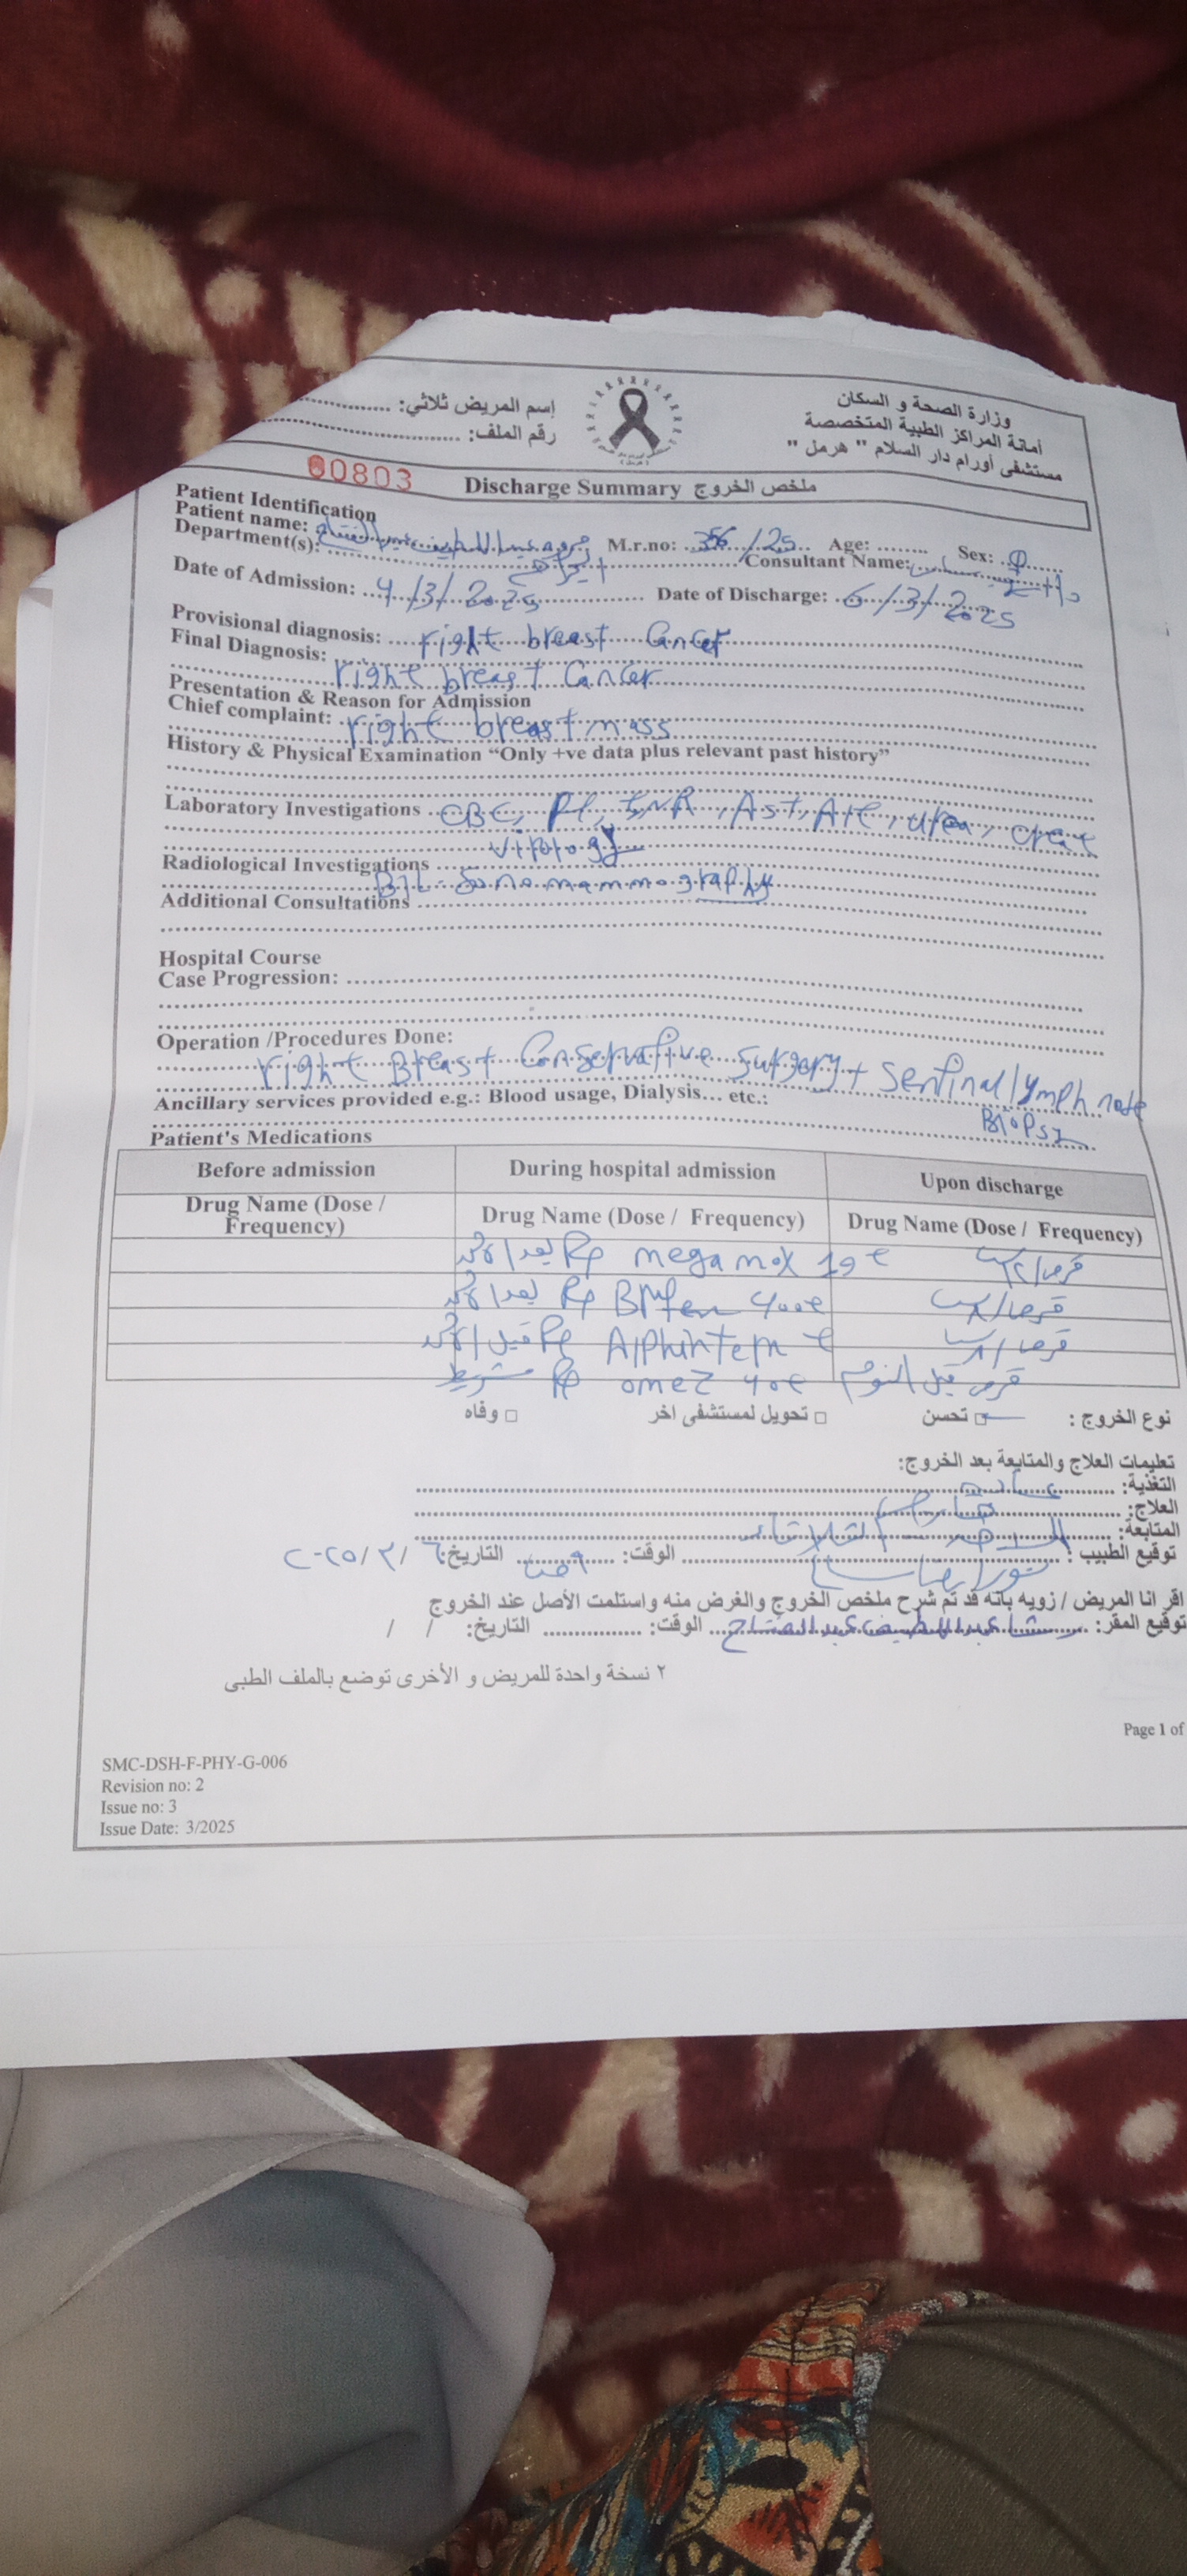 وزارة الصحة و السكان
أمانة المراكز الطبية المتخصصة
مستشفى أورام دار السلام " هرمل "
إسم المريض ثلاثي: ....................
رقم الملف: ....................
00803
Discharge Summary ملخص الخروج
Patient Identification
Patient name: عبد اللطيف عبد الفتاح M.r.no: 356/25 Age: ........ Sex: ♀
Department(s): ابراهيم Consultant Name:
Date of Admission: 4/3/2025 Date of Discharge: 6/3/2025
Provisional diagnosis: right breast Cancer
Final Diagnosis:
right breast Cancer
Presentation & Reason for Admission
Chief complaint: right breast mass
History & Physical Examination "Only +ve data plus relevant past history"
Laboratory Investigations CBC, PT, INR, AST, ALT, urea, creat
virology
Radiological Investigations
BIL Sonomammography
Additional Consultations
Hospital Course
Case Progression:
Operation /Procedures Done:
right Breast Conservative Surgery + Sentinal lymph node
Biopsy
Ancillary services provided e.g.: Blood usage, Dialysis... etc.:
Patient's Medications
Before admission During hospital admission Upon discharge
Drug Name (Dose / Frequency) Drug Name (Dose / Frequency) Drug Name (Dose / Frequency)
بعد الأكل Rp megamox 1g قرص/
بعد الأكل Rp Brufen 400 قرص/
قبل الأكل Rp Alphintern قرص/
شريط Rp omez 40 قرص قبل النوم
نوع الخروج : □ تحسن □ تحويل لمستشفى اخر □ وفاه
تعليمات العلاج والمتابعة بعد الخروج:
التغذية:
العلاج:
المتابعة: الثلاثاء
توقيع الطبيب : الوقت: ٩ التاريخ: ٦/٣/٢٠٢٥
اقر انا المريض / زويه بأنه قد تم شرح ملخص الخروج والغرض منه واستلمت الأصل عند الخروج
توقيع المقر: رشا عبد اللطيف عبد الفتاح الوقت: ................ التاريخ: / /
٢ نسخة واحدة للمريض و الأخرى توضع بالملف الطبى
Page 1 of
SMC-DSH-F-PHY-G-006
Revision no: 2
Issue no: 3
Issue Date: 3/2025